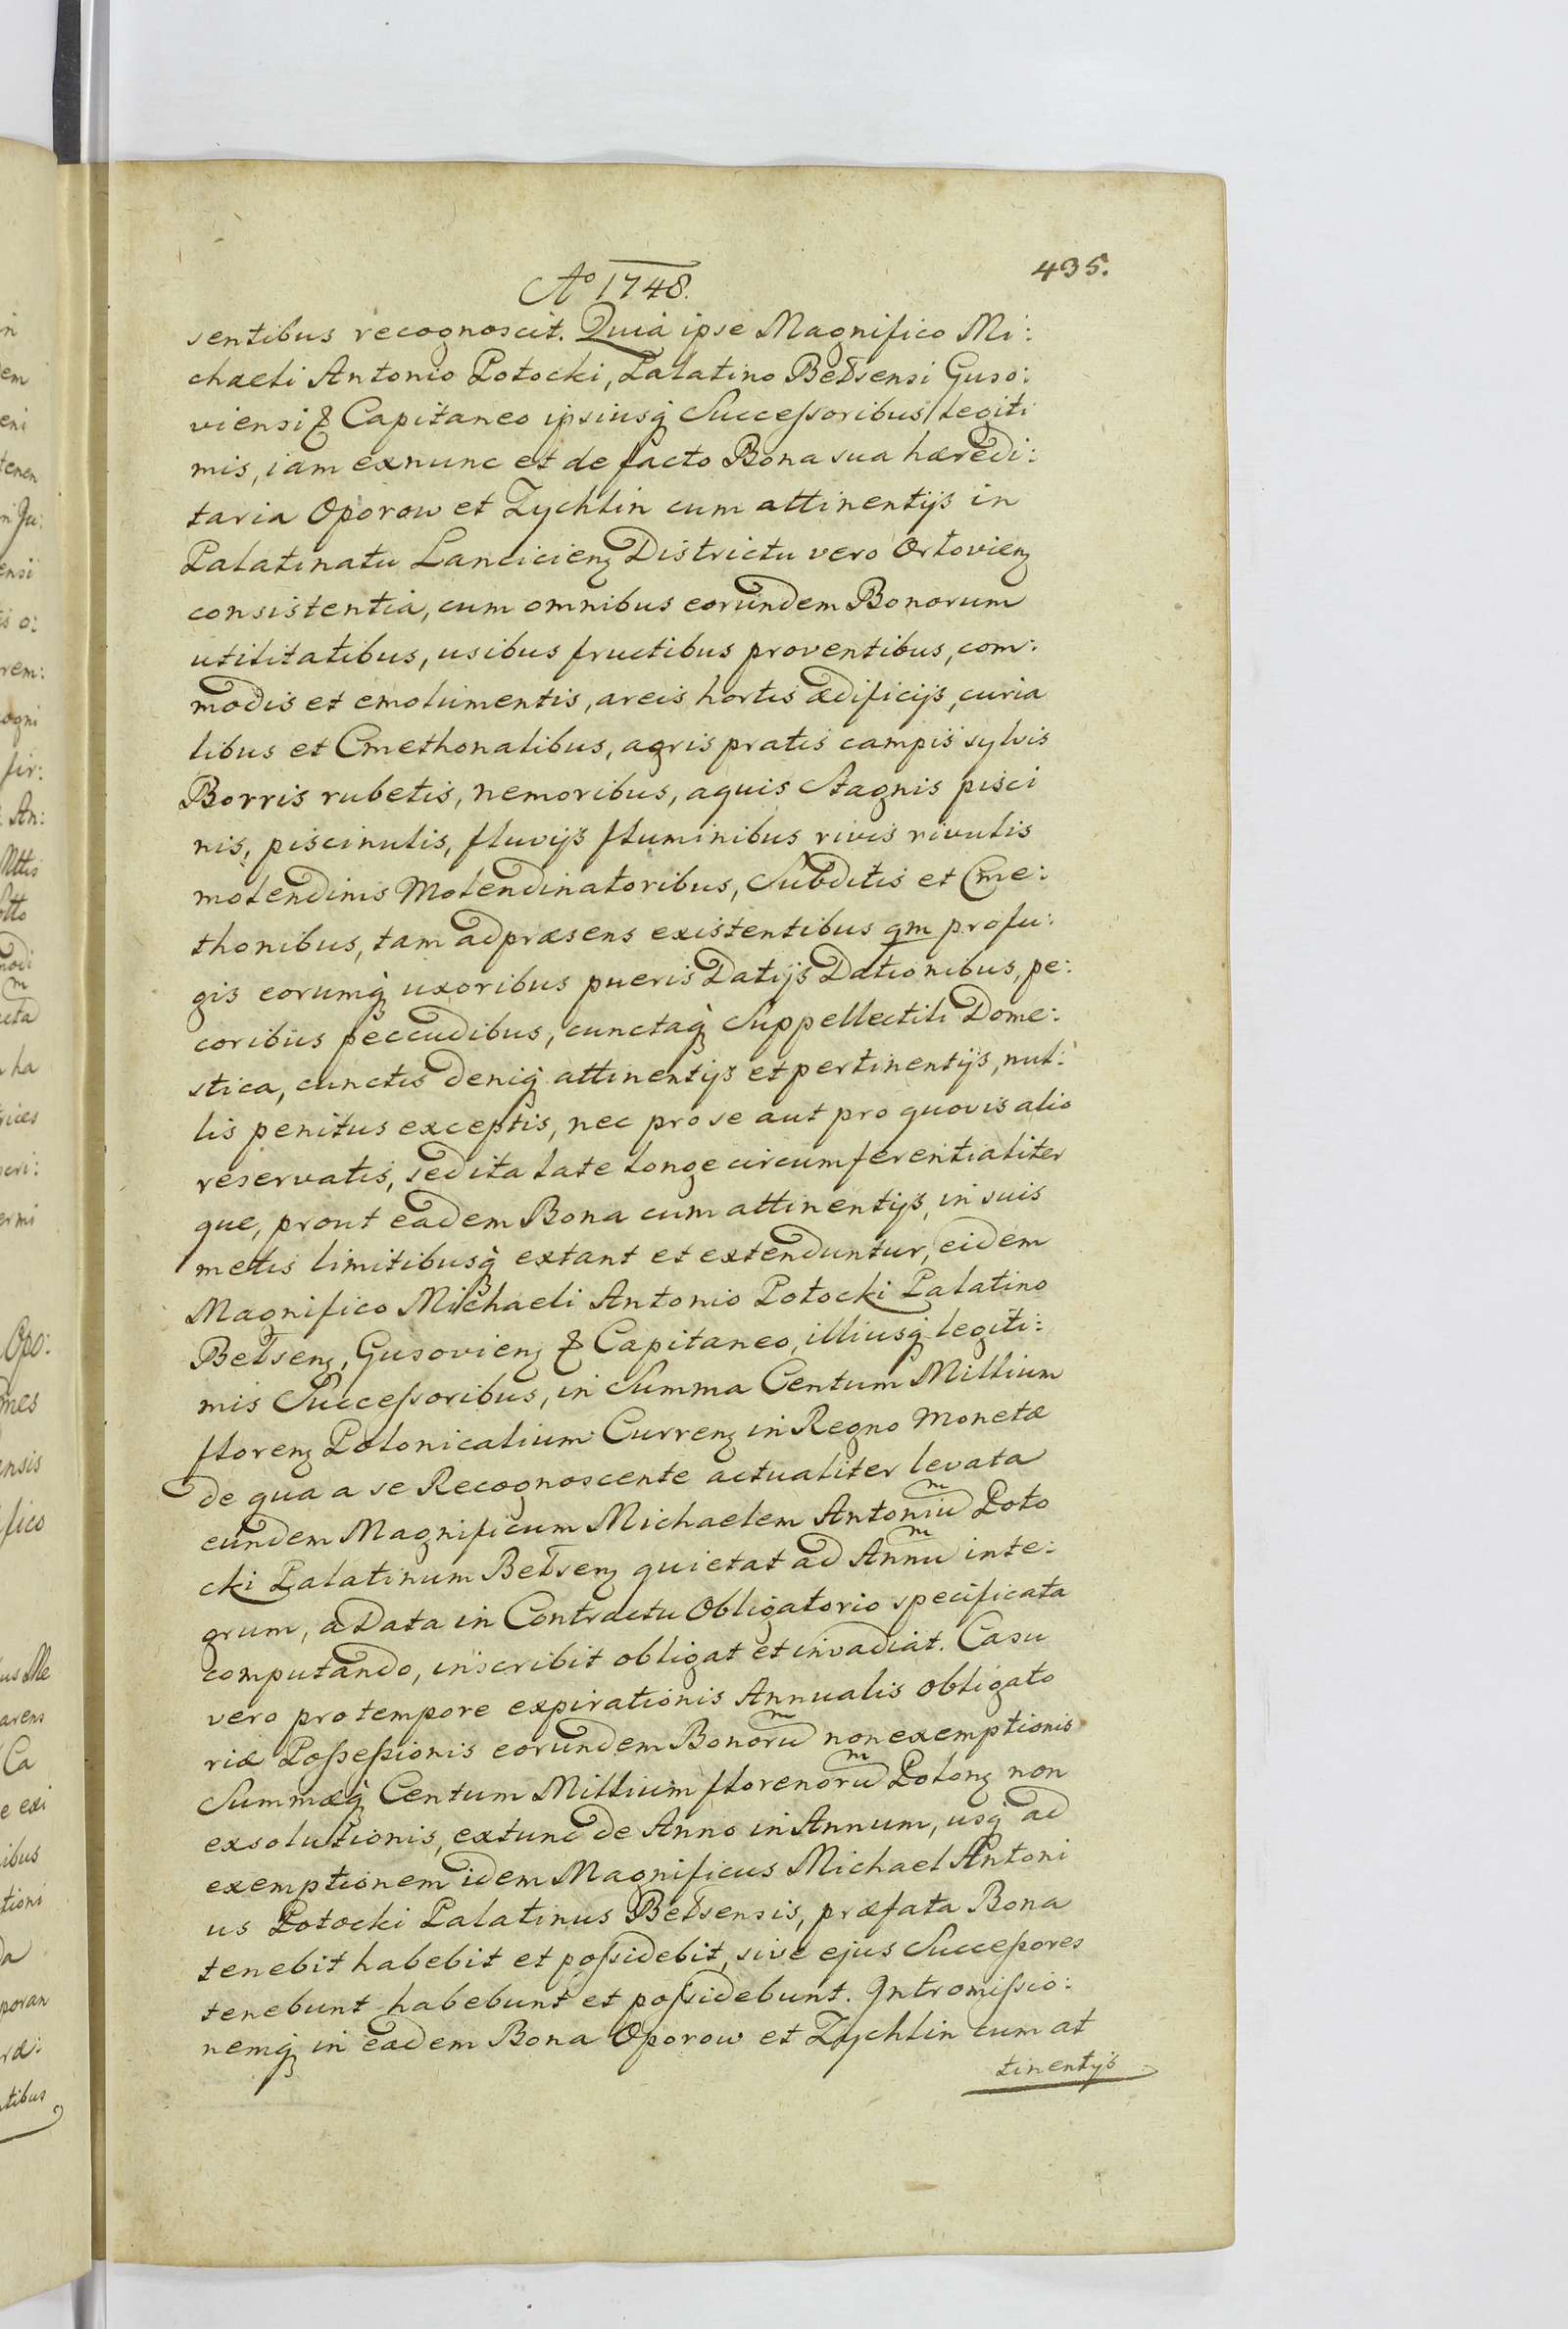 435.
Aº 1748.
sentibus recognoscit. Quia ipse Magnifico Mi:
chaeli Antonio Potocki, Palatino Betsensi Guso:
viensi & Capitaneo ipsiusq Successoribus legiti
mis, iam exnunc et de facto Bona sua hæredi:
taria Oporow et Zychlin cum attinentijs in
Palatinatu Lanciciens Districtu vero Orloviens
consistentia, cum omnibus eorundem Bonorum
utilitatibus, usibus fructibus proventibus, com:
modis et emolumentis, areis hortis ædificijs, curia
libus et Cmethonalibus, agris pratis campis sylvis
Borris rubetis, nemoribus, aquis Stagnis pisci
nis, piscinulis, fluvijs fluminibus rivis rivulis
molendinis Molendinatoribus, Subditis et Cme:
thonibus, tam adpræsens existentibus qm profu:
gis eorumq uxoribus pueris Datijs Dationibus, pe:
coribus peccudibus, cunctaq Suppellectili Dome:
stica, cunctis deniq attinentijs et pertinentijs, nul:
lis penitus exceptis, nec pro se aut pro quovis alio
reservatis, sed ita late longe circumferentialiter
que, prout eadem Bona cum attinentijs, in suis
metis limitibusq extant et extenduntur, eidem
Magnifico Michaeli Antonio Potocki Palatino
Betsens, Gusoviens & Capitaneo, illiusq legiti:
mis Successoribus, in Summa Centum Millium
florens Polonicalium Currens in Regno Monetæ
de qua a se Recognoscente actualiter levata
eundem Magnificum Michaelem Antoniuᵐ Poto
cki Palatinum Betsens quietat ad Annuᵐ inte:
grum, a Data in Contractu Obligatorio specificata
computando, inscribit obligat et invadiat. Casu
vero pro tempore expirationis Annualis obligato
riæ Possessionis eorundem Bonoruᵐ non exemptionis
Summæq Centum Millium florenoruᵐ Polons non
exsolutionis, extunc de Anno in Annum, usq ad
exemptionem idem Magnificus Michael Antoni
us Potocki Palatinus Betsensis, præfata Bona
tenebit habebit et possidebit, sive ejus Successores
tenebunt habebunt et possidebunt. Intromissio:
nemq in eadem Bona Oporow et Zychlin cum at
tinentijs